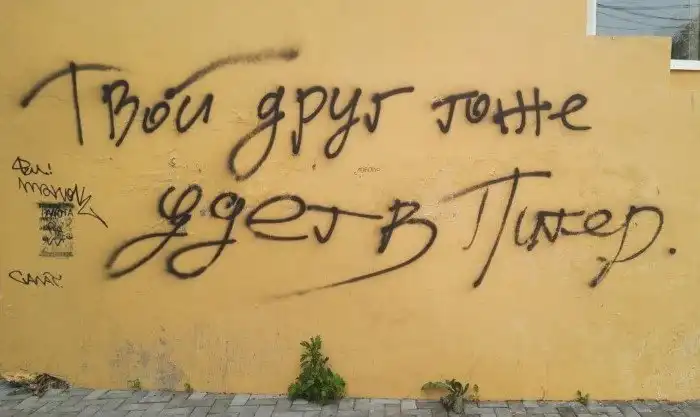 Твой друг тоже
уедет в Питер.